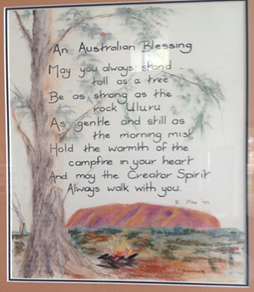 An Australian Blessing
May you always stand
tall as a tree
Be as strong as the
rock Uluru
As gentle and still as
the morning mist
Hold the warmth of the
campfire in your heart
And may the Creator Spirit
Always walk with you.